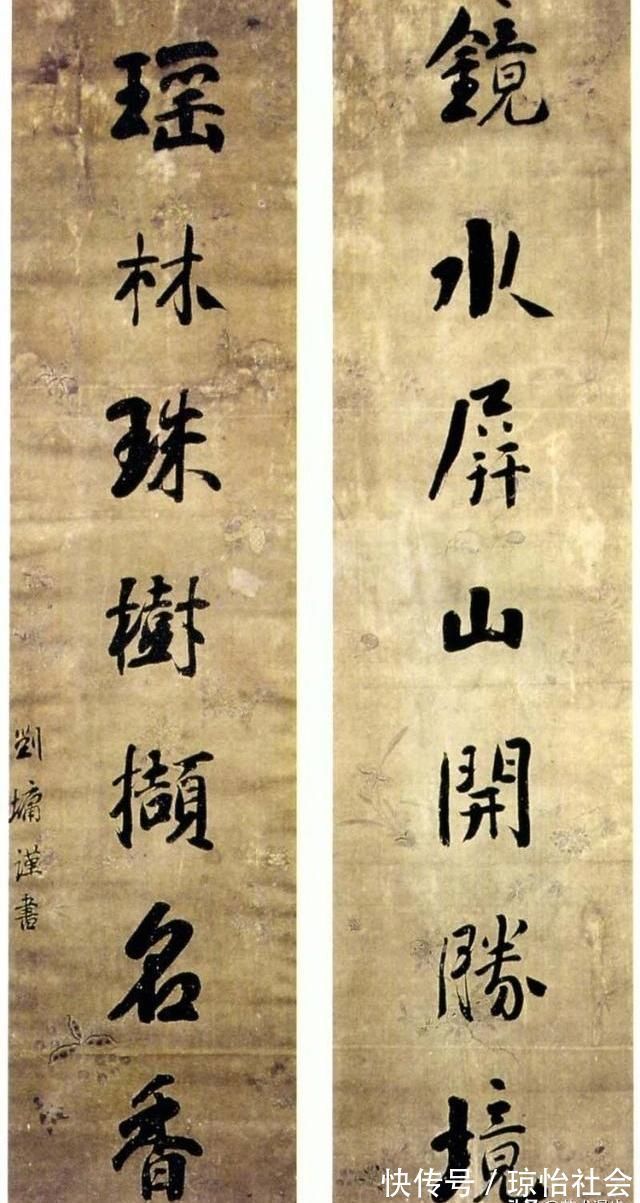 鏡水屏山開勝境
瑶林珠樹擷名香
劉墉謹書
快传号/琼怡社会